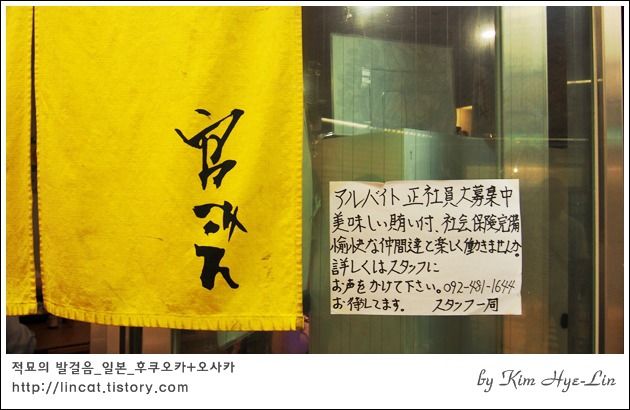 宮
アルバイト 正社員大募集中
美味しい賄い付、社会保険完備
愉快な仲間達と楽しく働きませんか。
詳しくはスタッフに
お声をかけて下さい。092-481-1644
お待してます。 スタッフ一同
적묘의 발걸음_일본_후쿠오카+오사카
http://lincat.tistory.com
by Kim Hye-Lin